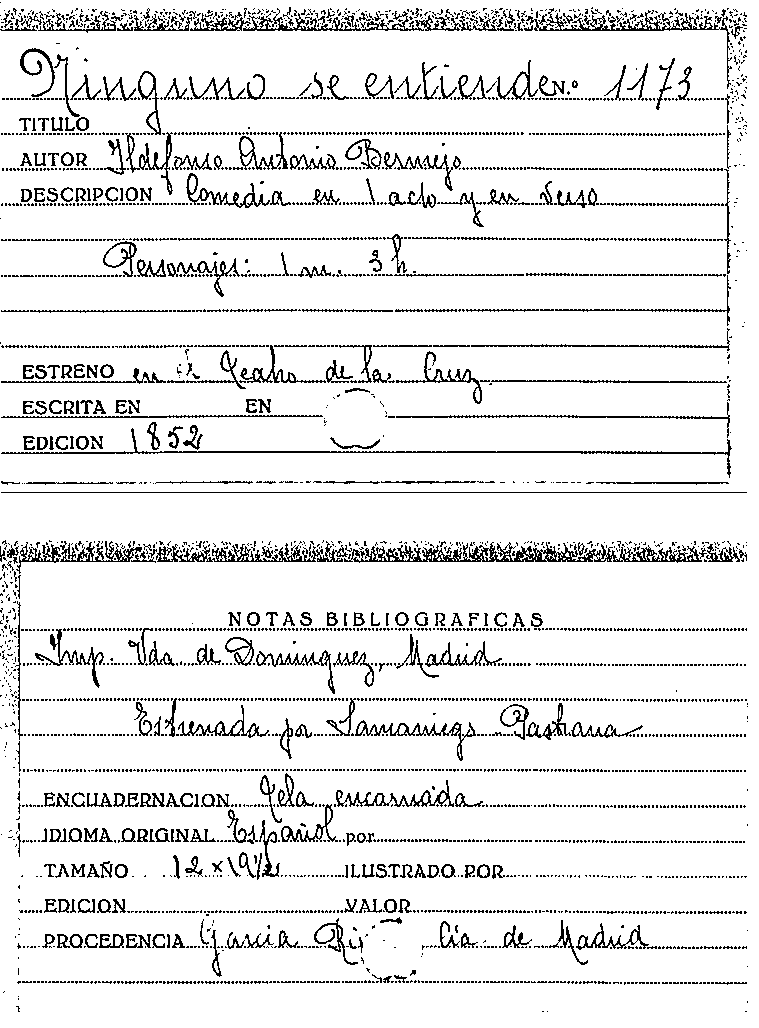 Ninguno se entiende N.º 1173
TITULO
AUTOR Ildefonso Antonio Bermejo
DESCRIPCION Comedia en 1 acto y en verso
Personajes: 1 m. 3 h.
ESTRENO en el Teatro de la Cruz
ESCRITA EN EN
EDICION 1852
NOTAS BIBLIOGRAFICAS
Imp. Vda de Dominguez, Madrid
Estrenada por Samaniego Pastrana
ENCUADERNACION Tela encarnada
IDIOMA ORIGINAL Español por
TAMAÑO 12 x 19 1/2 ILUSTRADO POR
EDICION VALOR
PROCEDENCIA Garcia Cia de Madrid